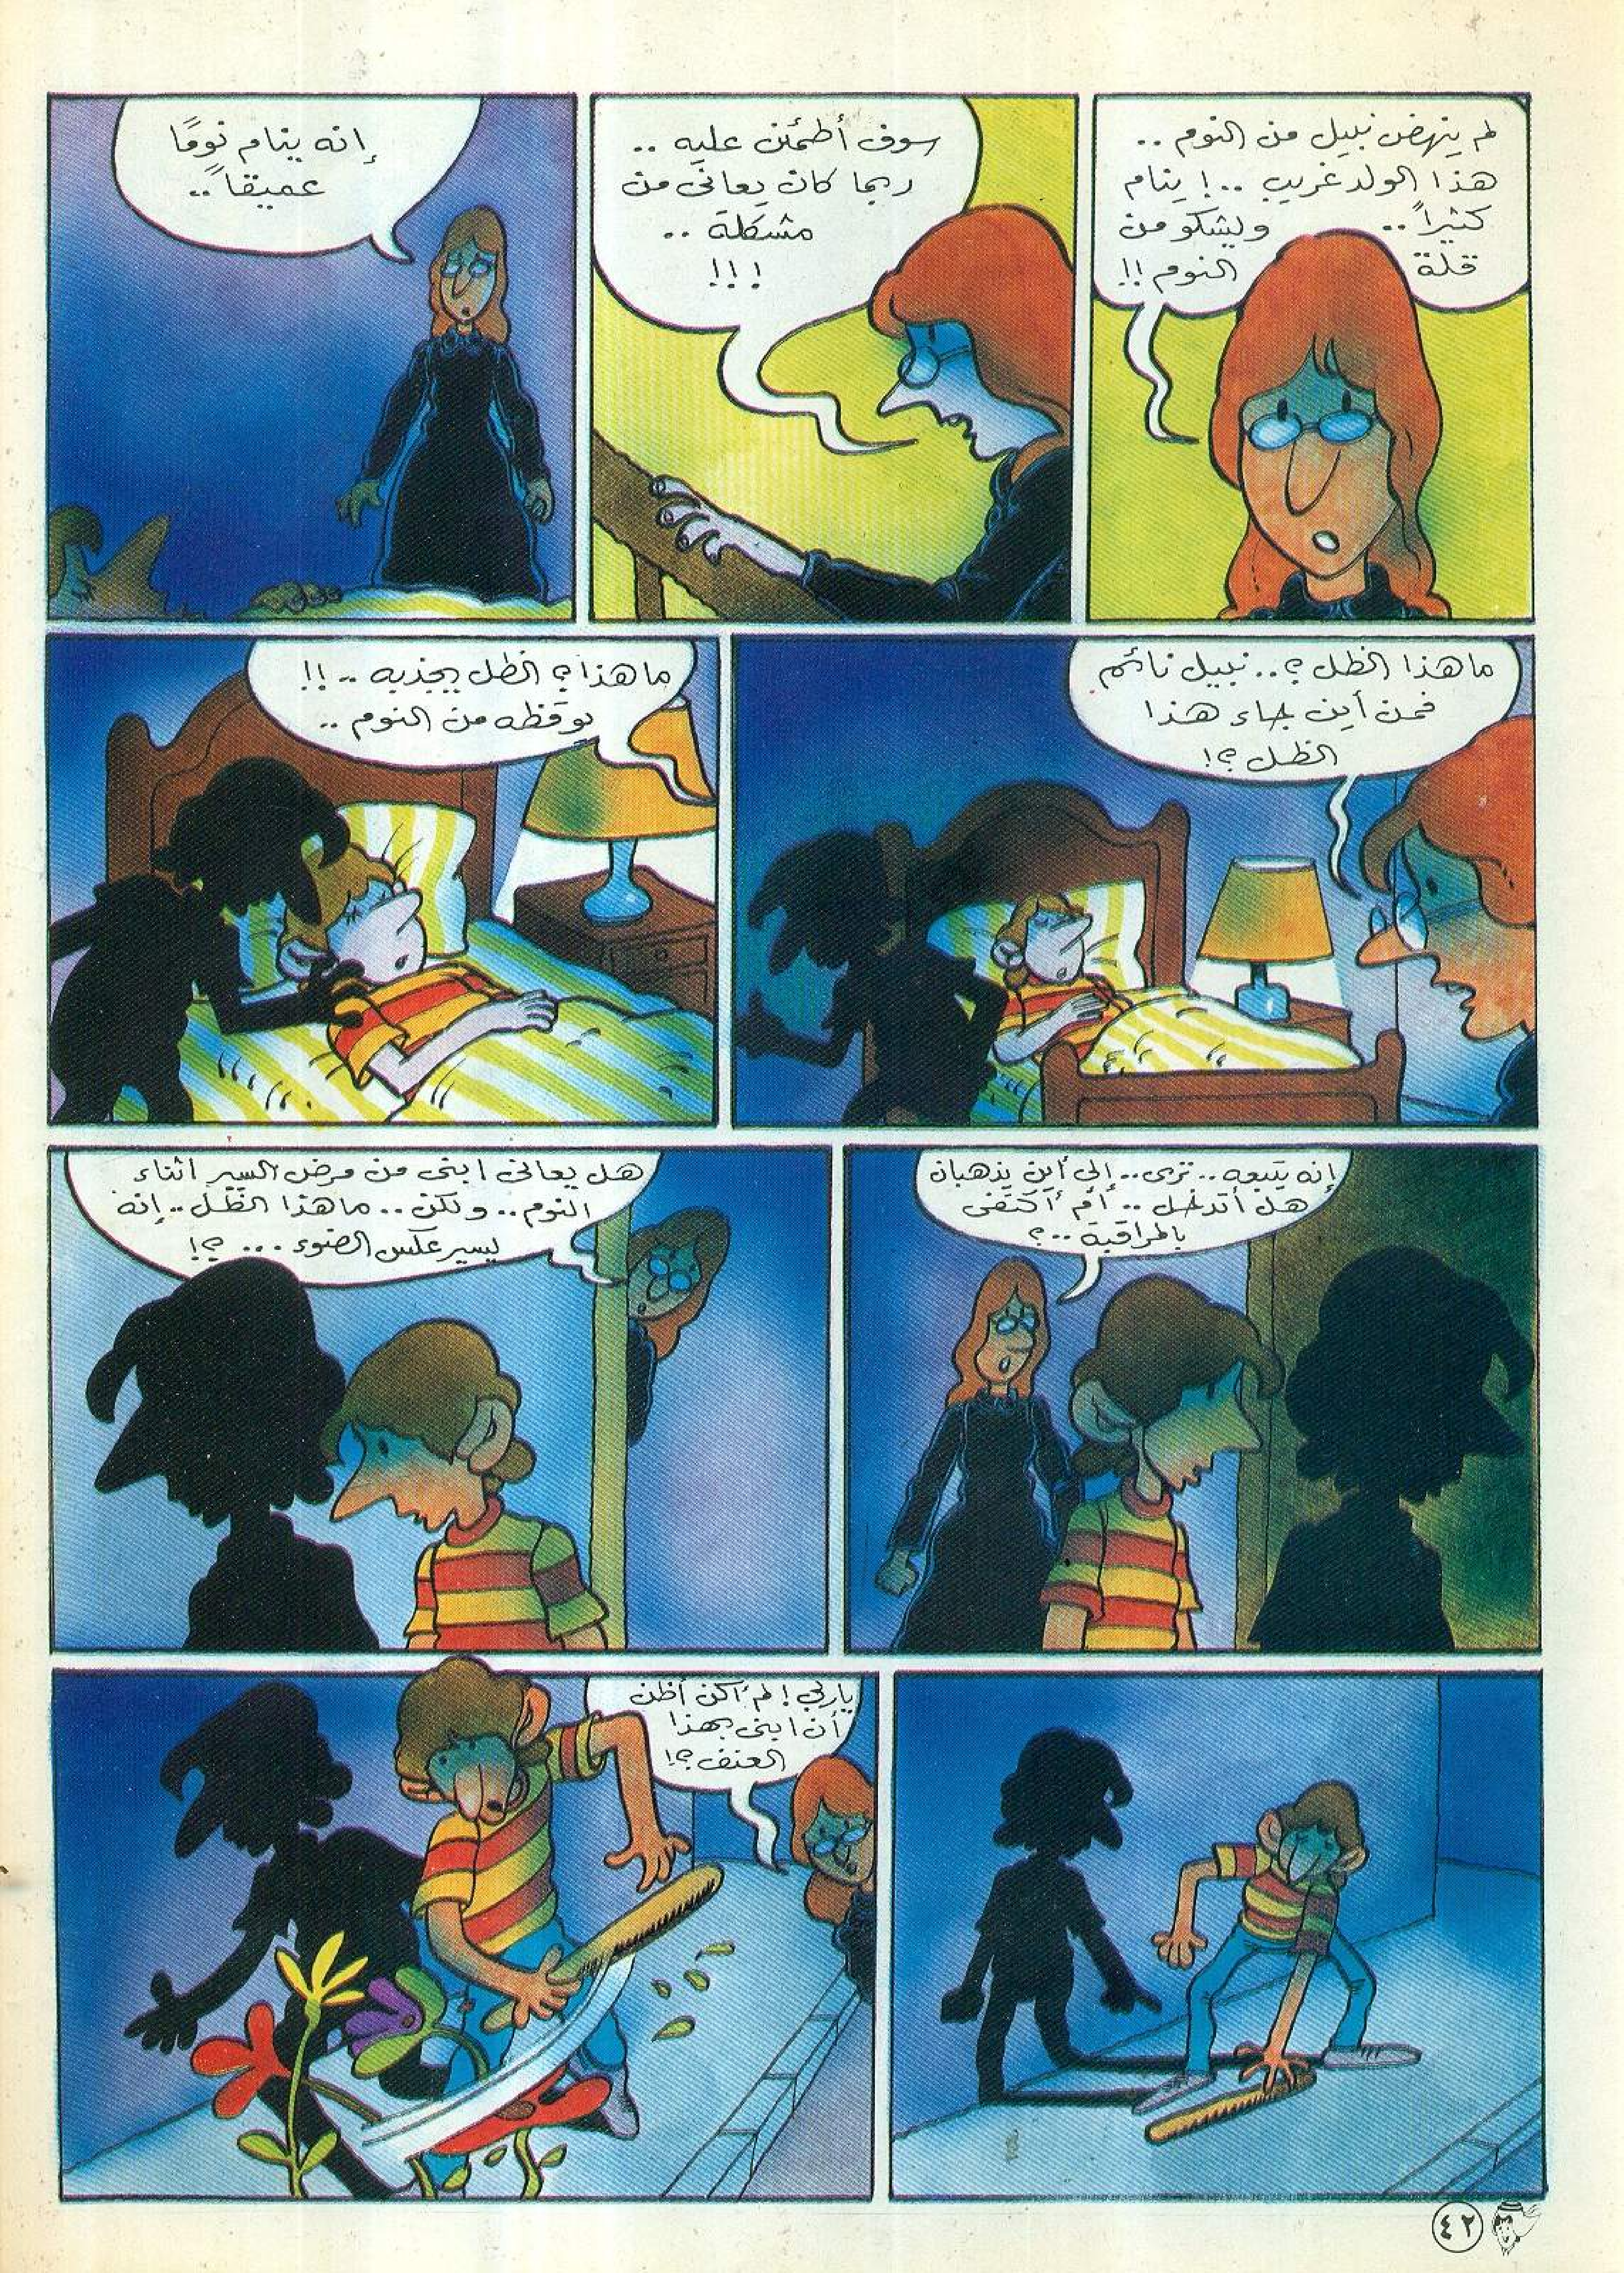 لم ينهض نبيل من النوم ..
هذا الولد غريب ..! ينام
كثيراً .. ويشكو من
قلة النوم !!
سوف أطمئن عليه ..
ربما كان يعانى من
مشكلة ..
!!!
إنه ينام نومًا
عميقاً ..
ما هذا الظل ؟.. نبيل نائم
فمن أين جاء هذا
الظل ؟!
ما هذا ؟ الظل يجذبه ..!!
يوقظه من النوم ..
إنه يتبعه .. ترى .. إلى أين يذهبان
هل أتدخل .. أم أكتفى
بالمراقبة ..؟
هل يعانى ابنى من مرض السير أثناء
النوم .. ولكن .. ما هذا الظل .. إنه
يسير عكس الضوء ... ؟!
ياربى ! لم أكن أظن
أن ابنى بهذا
العنف ؟!
٤٢